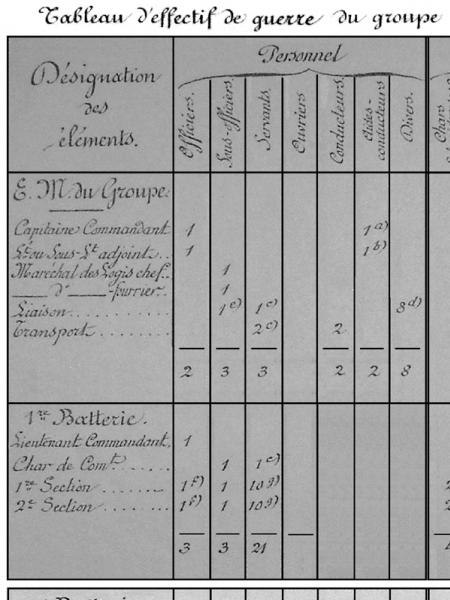 Tableau d'effectif de guerre du groupe
Personnel
Désignation des éléments.
Officiers. Sous-officiers. Servants. Ouvriers Conducteurs. Aides-conducteurs Divers. Chars
E. M. du Groupe.
Capitaine Commandant 1 1a)
Lt ou Sous-Lt adjoint.. 1 1b)
Maréchal des Logis chef.. 1
— d° — -fourrier.. 1
Liaison.......... 1c) 1c) 8d)
Transport......... 2c) 2
2 3 3 2 2 8
1re Batterie.
Lieutenant Commandant, 1
Char de Comt...... 1 1c)
1re Section....... 1f) 1 10g) 2
2e Section........ 1f) 1 10g) 2
3 3 21